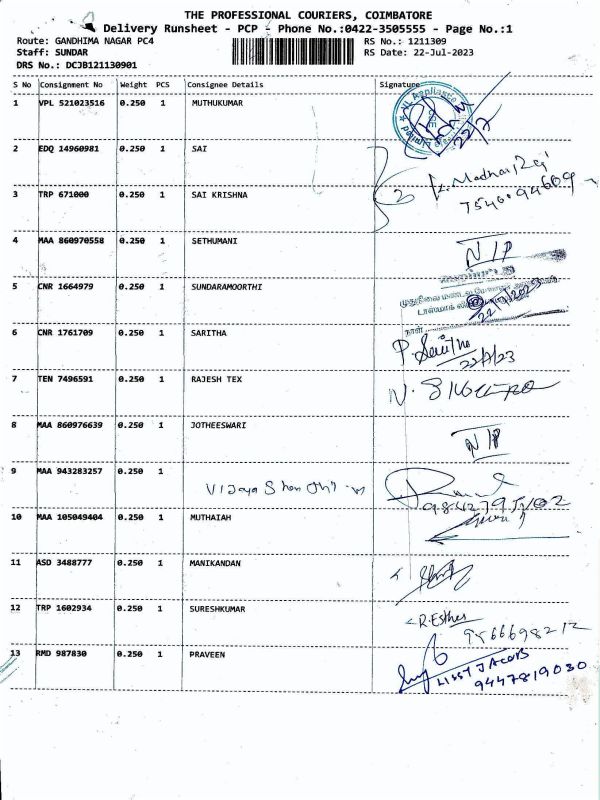 THE PROFESSIONAL COURIERS, COIMBATORE
Delivery Runsheet - PCP - Phone No.:0422-3505555 - Page No.:1
Route: GANDHIMA NAGAR PC4 RS No.: 1211309
Staff: SUNDAR RS Date: 22-Jul-2023
DRS No.: DCJB121130901
S No Consignment No Weight PCS Consignee Details Signature
1 VPL 521023516 0.250 1 MUTHUKUMAR 22/7
2 EDQ 14960981 0.250 1 SAI
3 TRP 671000 0.250 1 SAI KRISHNA
4 MAA 860970558 0.250 1 SETHUMANI N/P
5 CNR 1664979 0.250 1 SUNDARAMOORTHI
6 CNR 1761709 0.250 1 SARITHA 22/7/23
7 TEN 7496591 0.250 1 RAJESH TEX
8 MAA 860976639 0.250 1 JOTHEESWARI N/P
9 MAA 943283257 0.250 1
10 MAA 105049404 0.250 1 MUTHAIAH
11 ASD 3488777 0.250 1 MANIKANDAN
12 TRP 1602934 0.250 1 SURESHKUMAR R.Esther
13 RMD 987830 0.250 1 PRAVEEN LISSY JACOB
9447819030